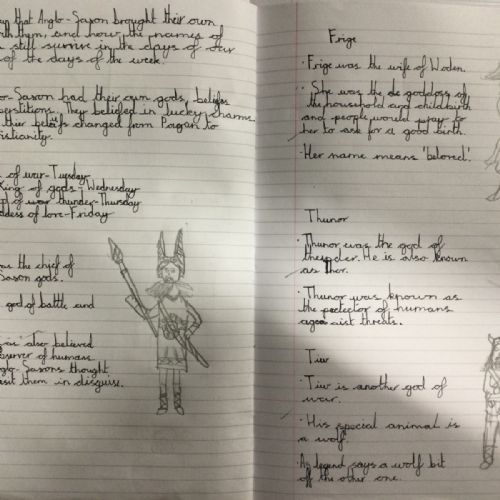 that Anglo-Saxon brought their own
with them, and how the names of
still survive in the days of our
of the days of the week.
Saxon had their own gods, beliefs
They belifed in lucky charms.
their beliefs changed from Pagan to
of war-Tuesday
King of gods-Wednesday
of war thunder-Thursday
of love-Friday
was the chief of
Saxon gods.
god of battle and
also believed
of humans
Saxons thought
them in disguise.
Frige
· Frige was the wife of Woden.
· She was the goddess of
the household and childbirth
and people would pray to
her to ask for a good birth.
· Her name means 'beloved'.
Thunor
· Thunor was the god of
He is also known
as Thor.
· Thunor was known as
the protector of humans
threats.
Tiw
· Tiw is another god of
war.
· His special animal is
a wolf.
· legend says a wolf bit
off the other one.